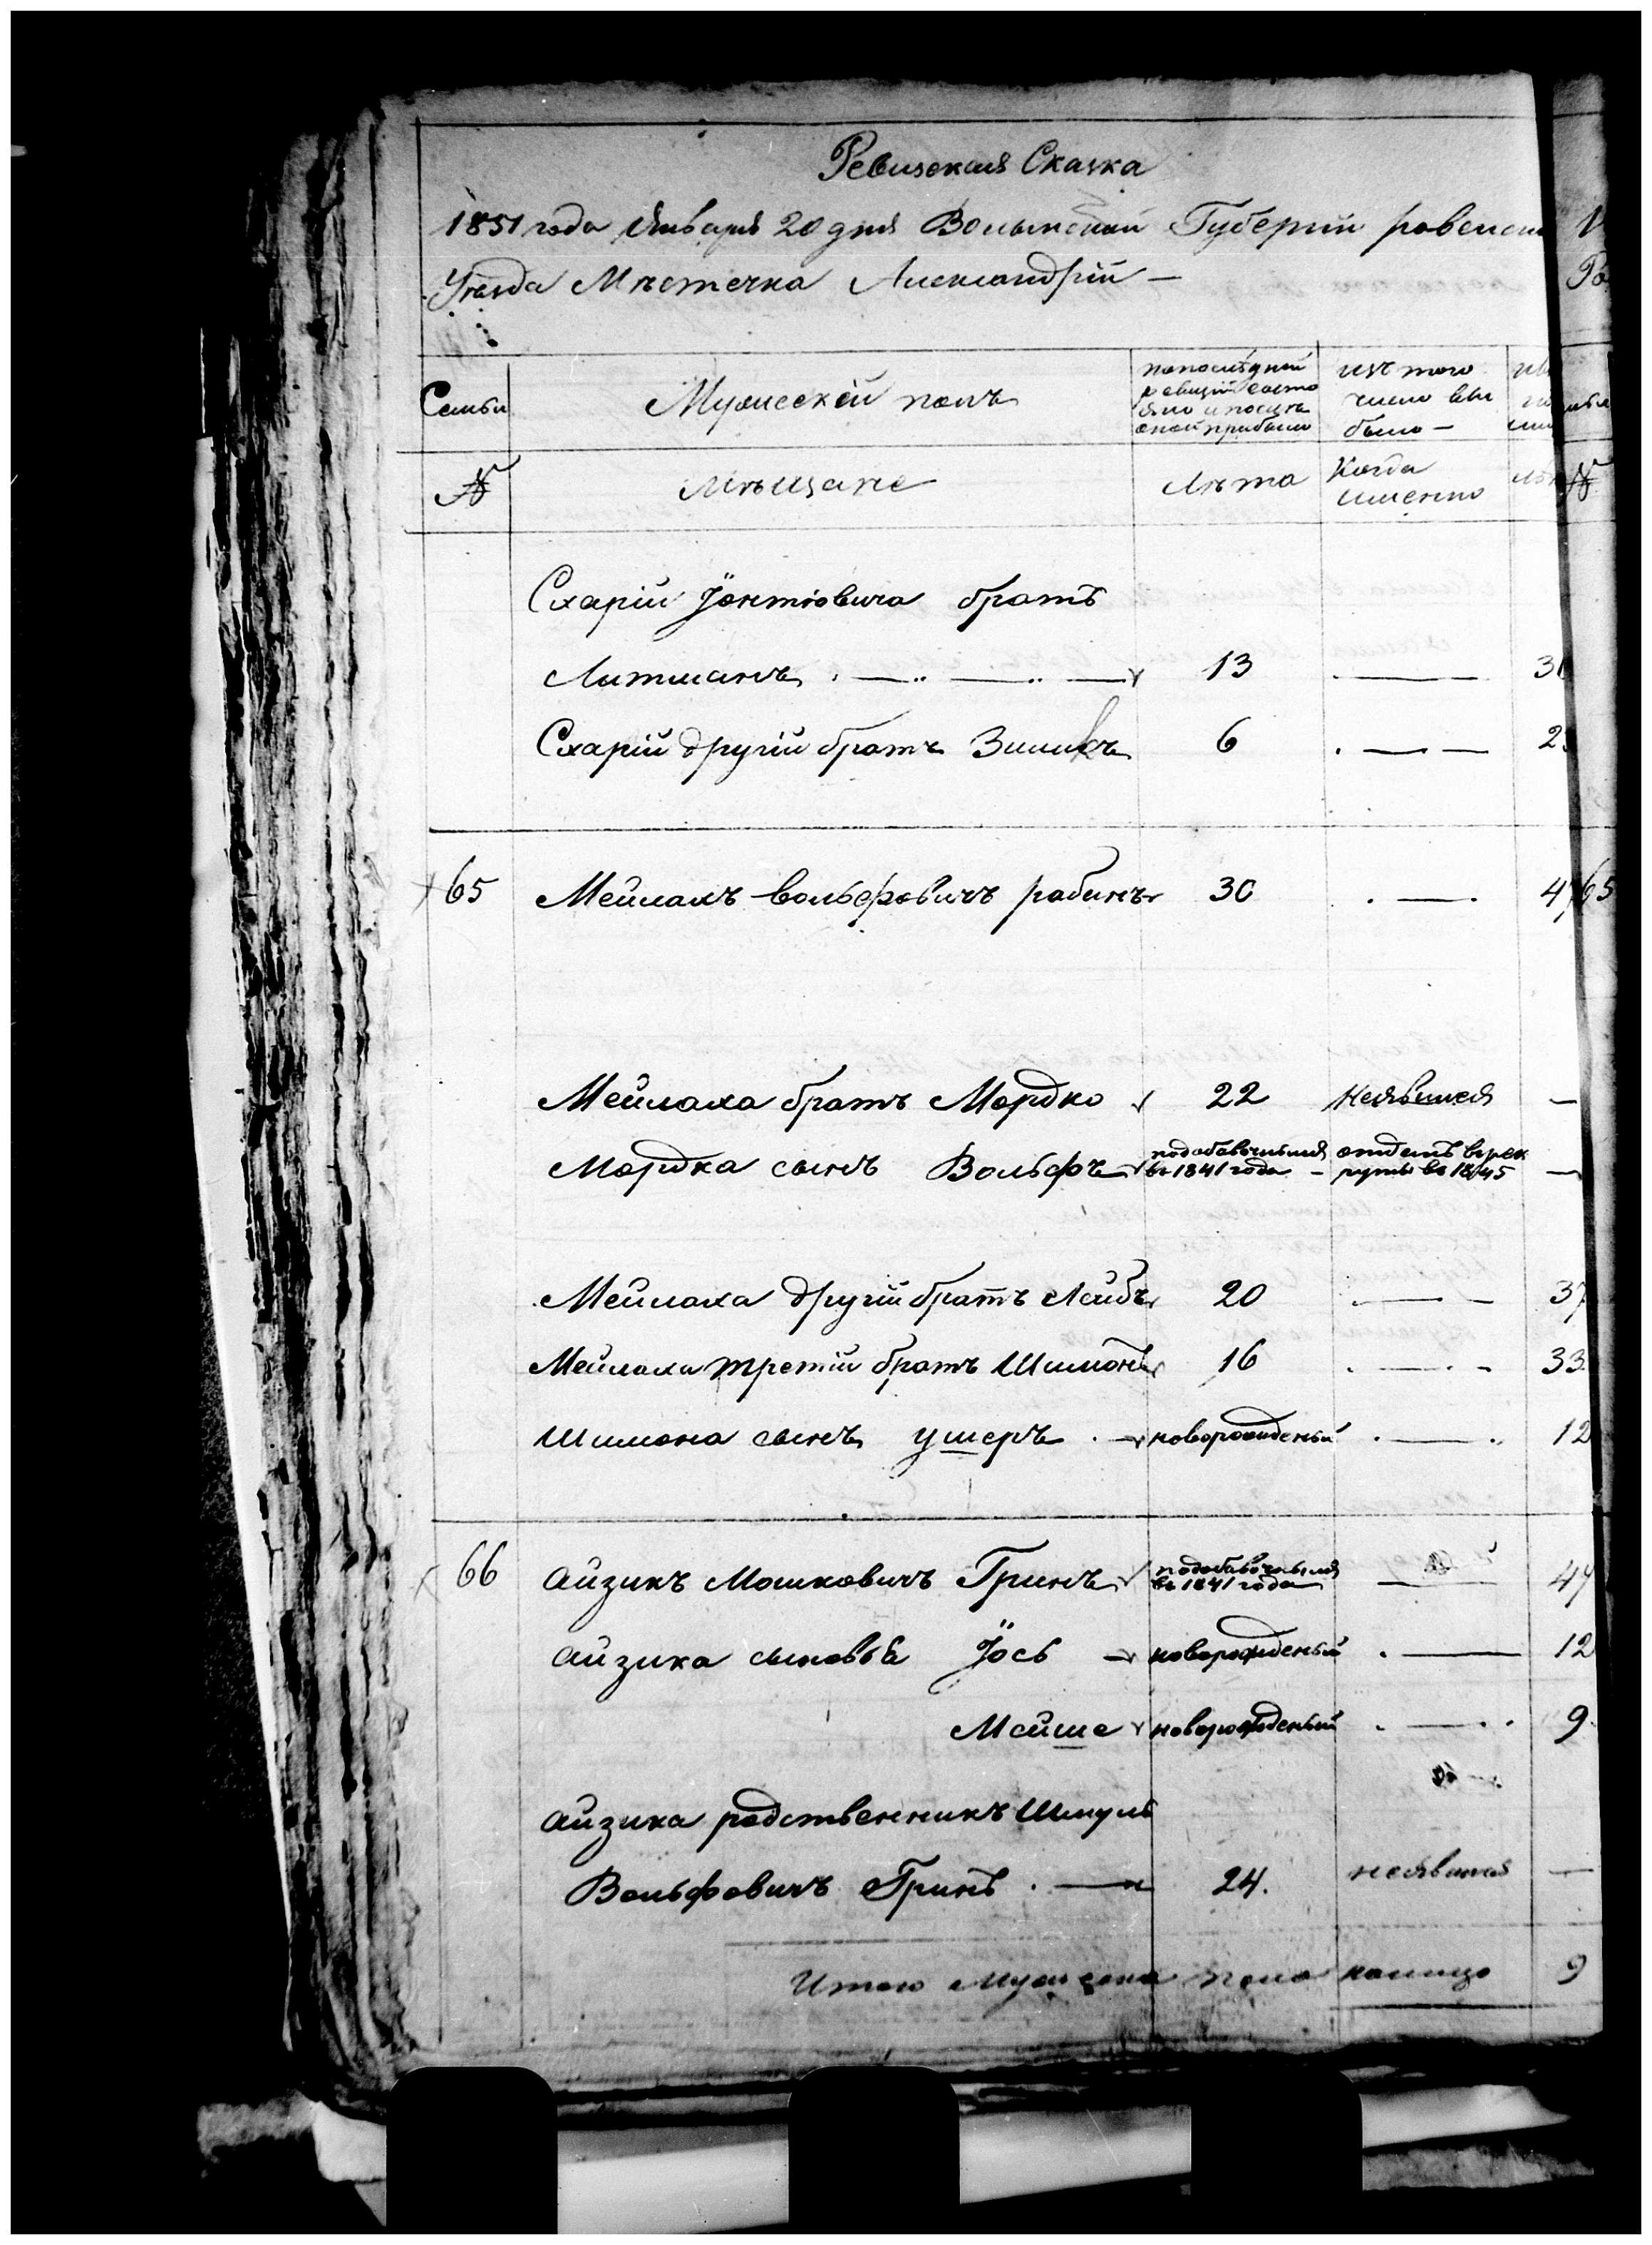 Ревизская Сказка
1851 года Января 20 дня Волынской Губернии ровенск
Уѣзда Мѣстечка Александрiи —
Семьи
Мужескiй полъ
попослѣдней ревизiи состояло и послѣ оной прибыло
изъ того число вы было —
№
Мѣщане
Лѣта
Когда именно
№
Схарiи Іонтiовича братъ
Литманъ 13 — 31
Схарiи другiй братъ Зиликъ 6 — 2
65 Мейлахъ вольфовичъ рабинъ 30 — 47 65
Мейлаха братъ Мордко 22 неявился —
Мордка сынъ Вольфъ
подобавочныля въ 1841 года — отданъ врек руты въ 1845 —
Мейлаха другiй братъ Лейбъ 20 — 37
Мейлаха третiй братъ Шимонъ 16 — 33
Шимона сынъ ушеръ новорожденый — 12
66 айзикъ Мошковичъ Гринъ
подобавочныля въ 1841 года — 47
айзика сыновья Іось — новорожденый — 12
Мойше новорожденый — 9
айзика родственникъ Шмуль
Вольфовичъ Гринъ — 24. неявился —
Итого Мужеска пола налицо 9